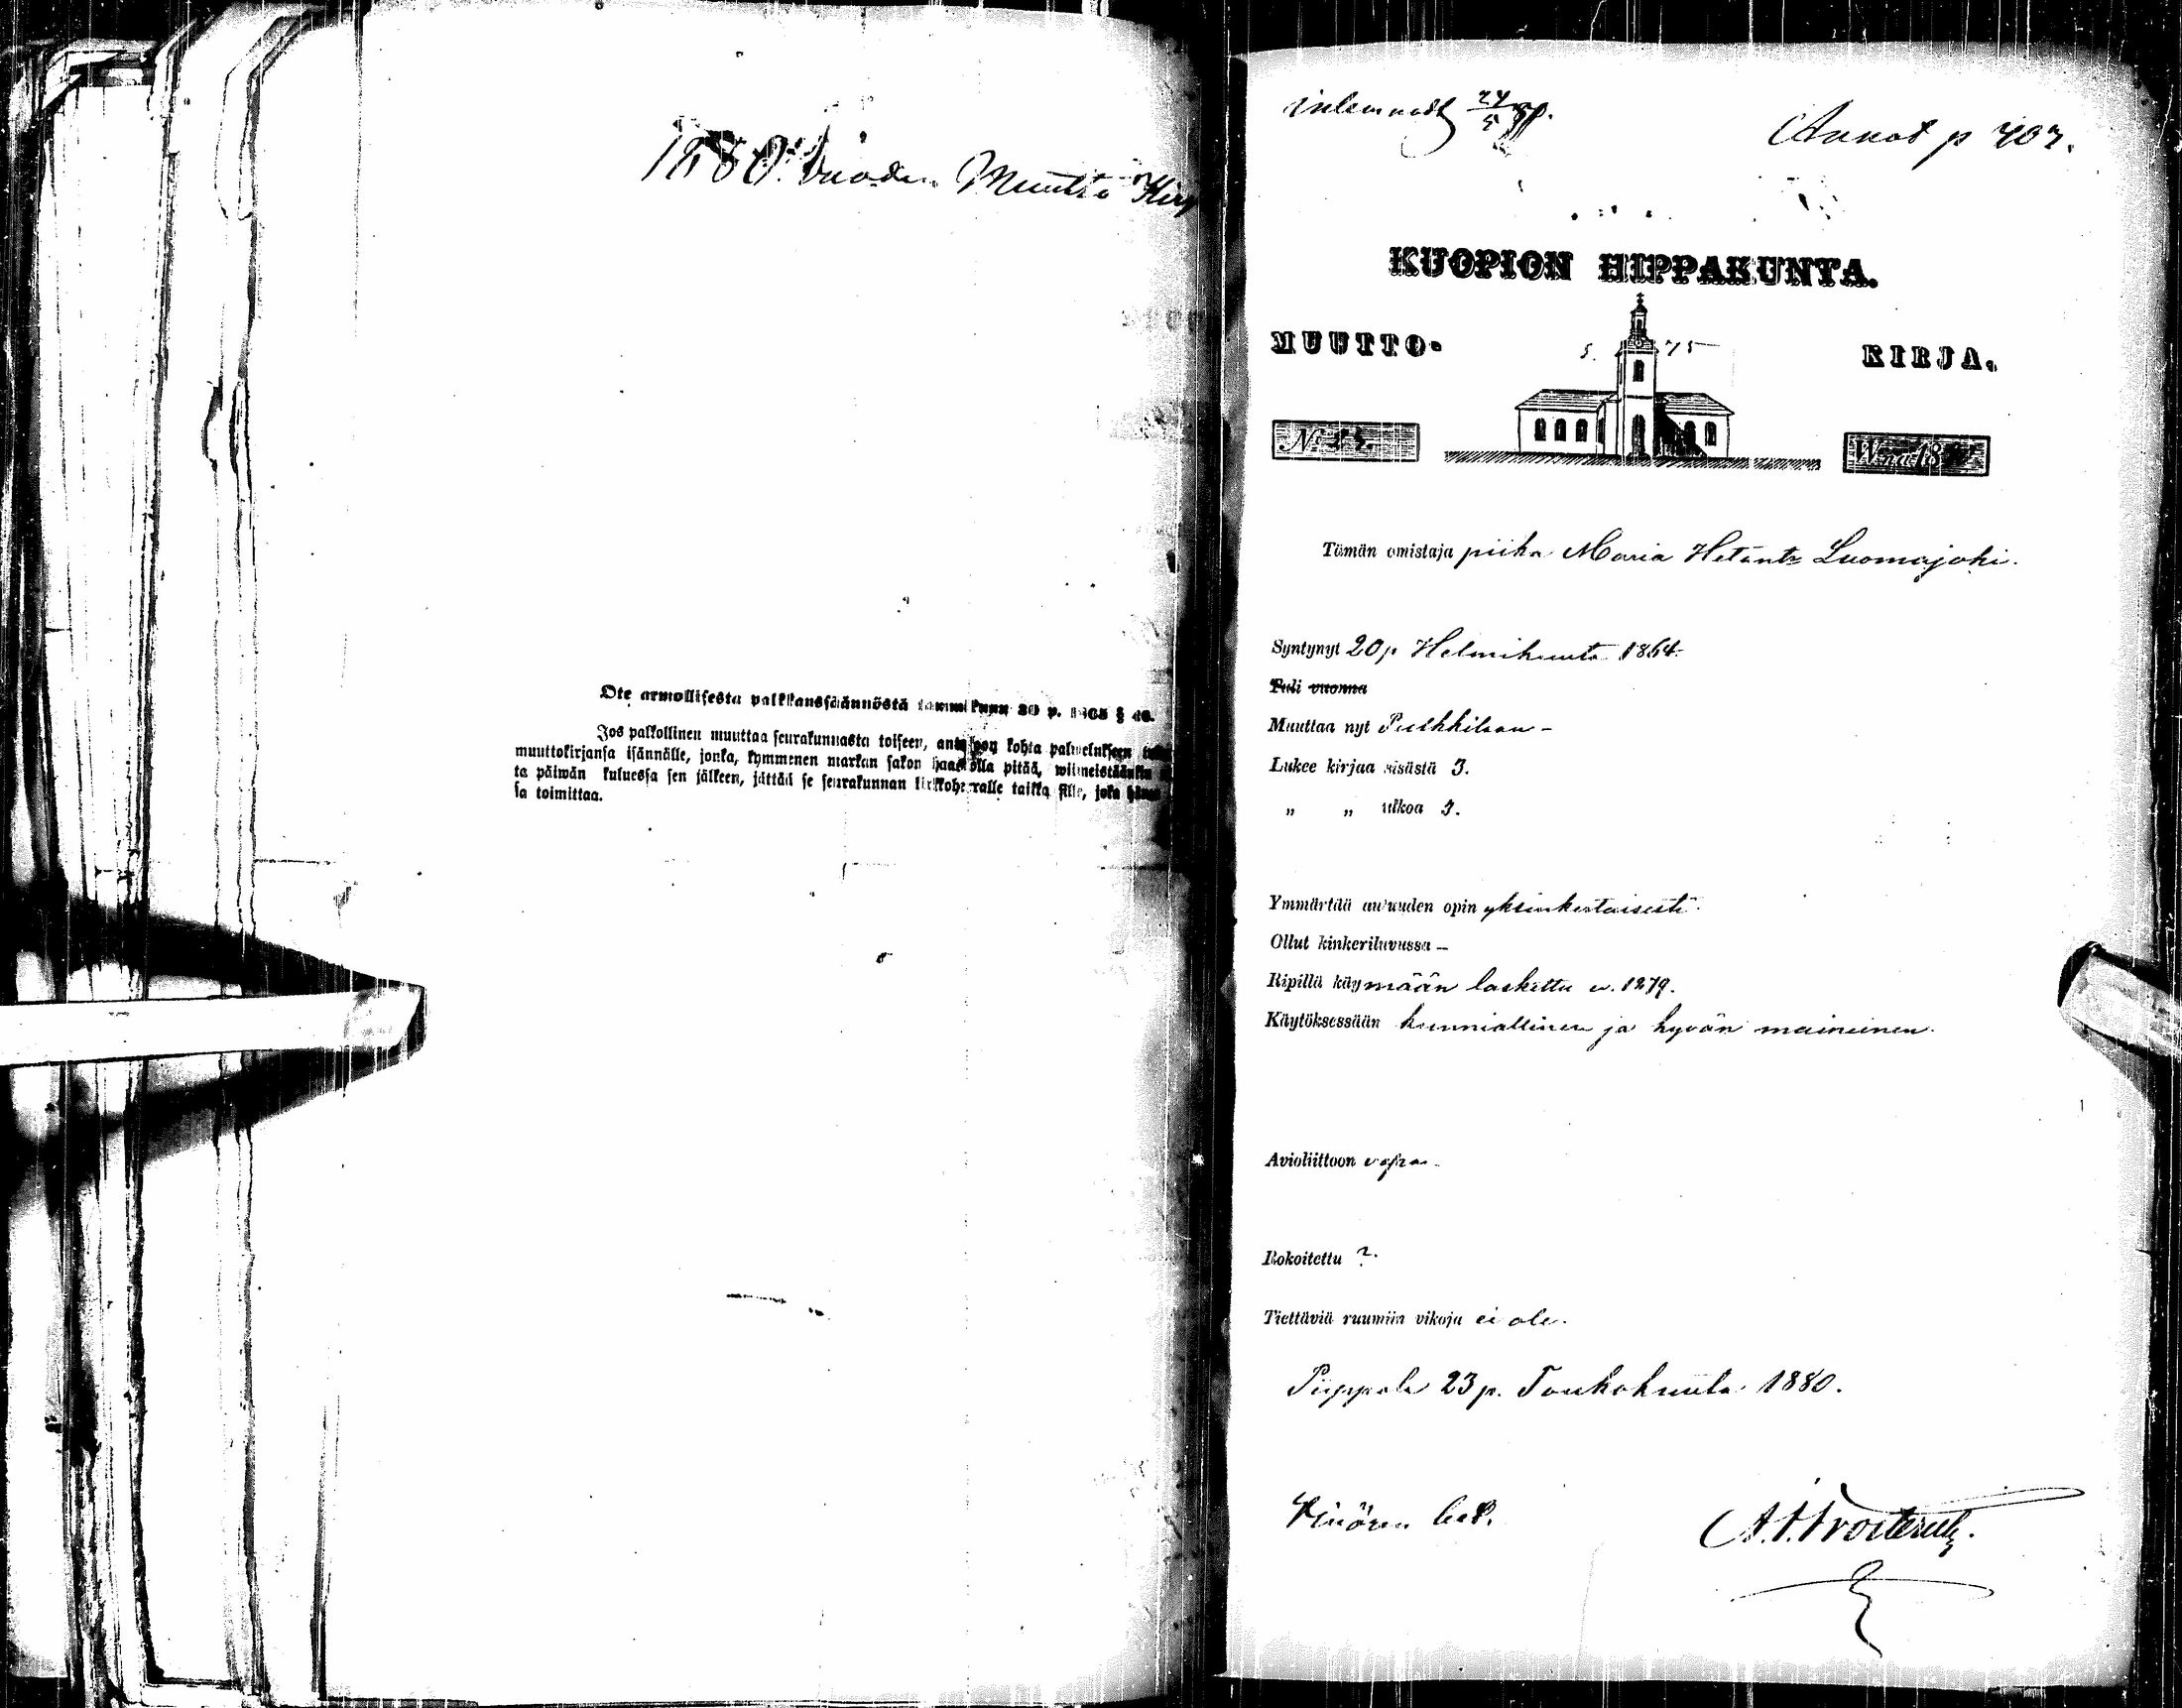 1880. Vuoden Muutto Kirj
Ote armollisesta palkkaussäännöstä tammikuun 30 p. 1865 §
Jos palkollinen muuttaa seurakunnasta toiseen, antakoon kohta palwelukseen
muuttokirjansa isännälle, jonka, kymmenen markan sakon haastolla pitää, wiimeistäänkin
ta päiwän kuluessa sen jälkeen, jättää se seurakunnan kirkkoherralle taikka sille, joka
sa toimittaa.
inlemnadt 24/5 80.
Annot p 707.
KUOPION HIPPAKUNTA.
MUUTTO- KIRJA.
5. 75
N:o 23. W:na 18
Tämän omistaja piika Maria Luomajoki.
Syntynyt 20 p. Helmikuuta 1864.
Tuli vuonna
Muuttaa nyt Pulkkilaan –
Lukee kirjaa sisästä 3.
„ „ ulkoa 3.
Ymmärtää autuuden opin yksinkertaisesti.
Ollut kinkeriluvussa –
Ripillä käymään laskettu v. 1879.
Käytöksessään kunniallinen ja hyvän maineinen.
Avioliittoon vapaa.
Rokoitettu ?.
Tiettäviä ruumiin vikoja ei ole.
Piippola 23 p. Toukokuuta 1880.